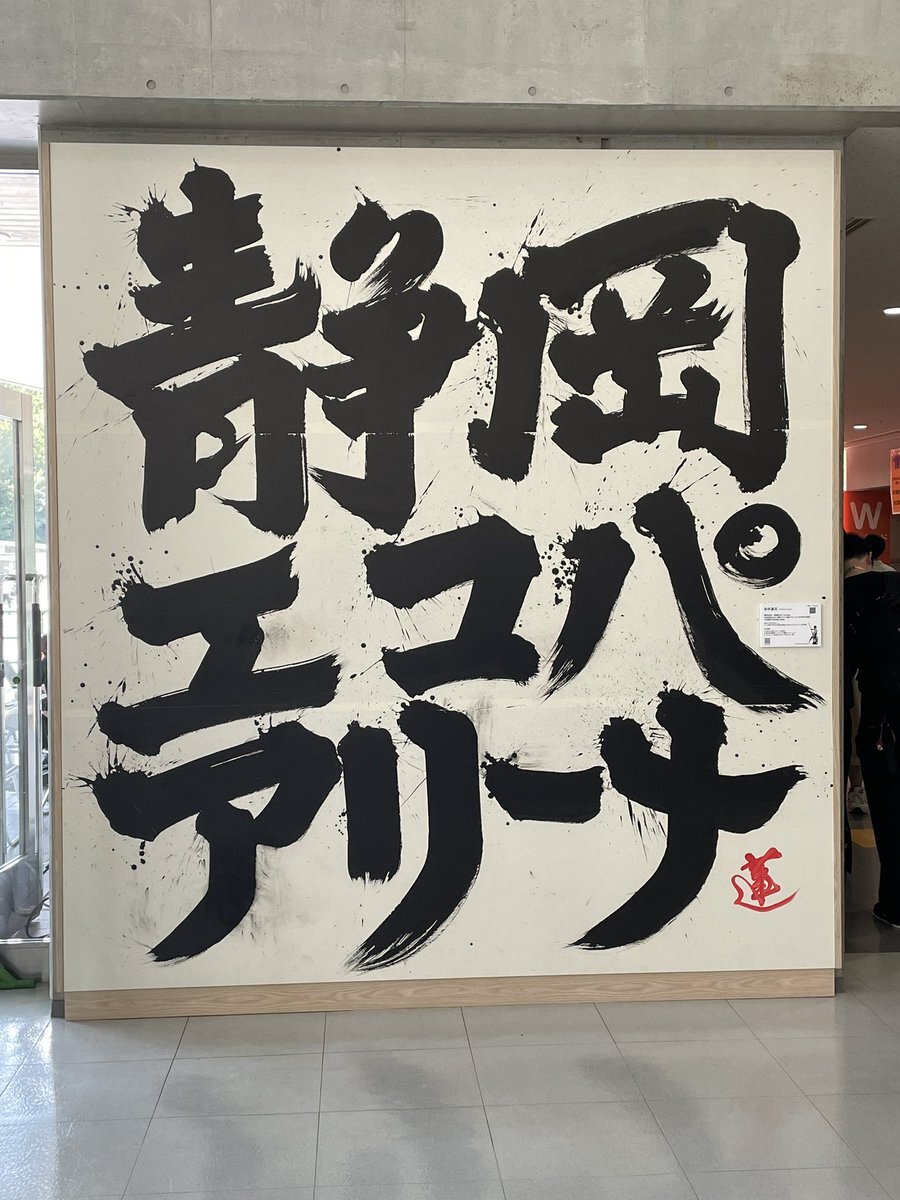 静岡
エコパ
アリーナ
蓮
W